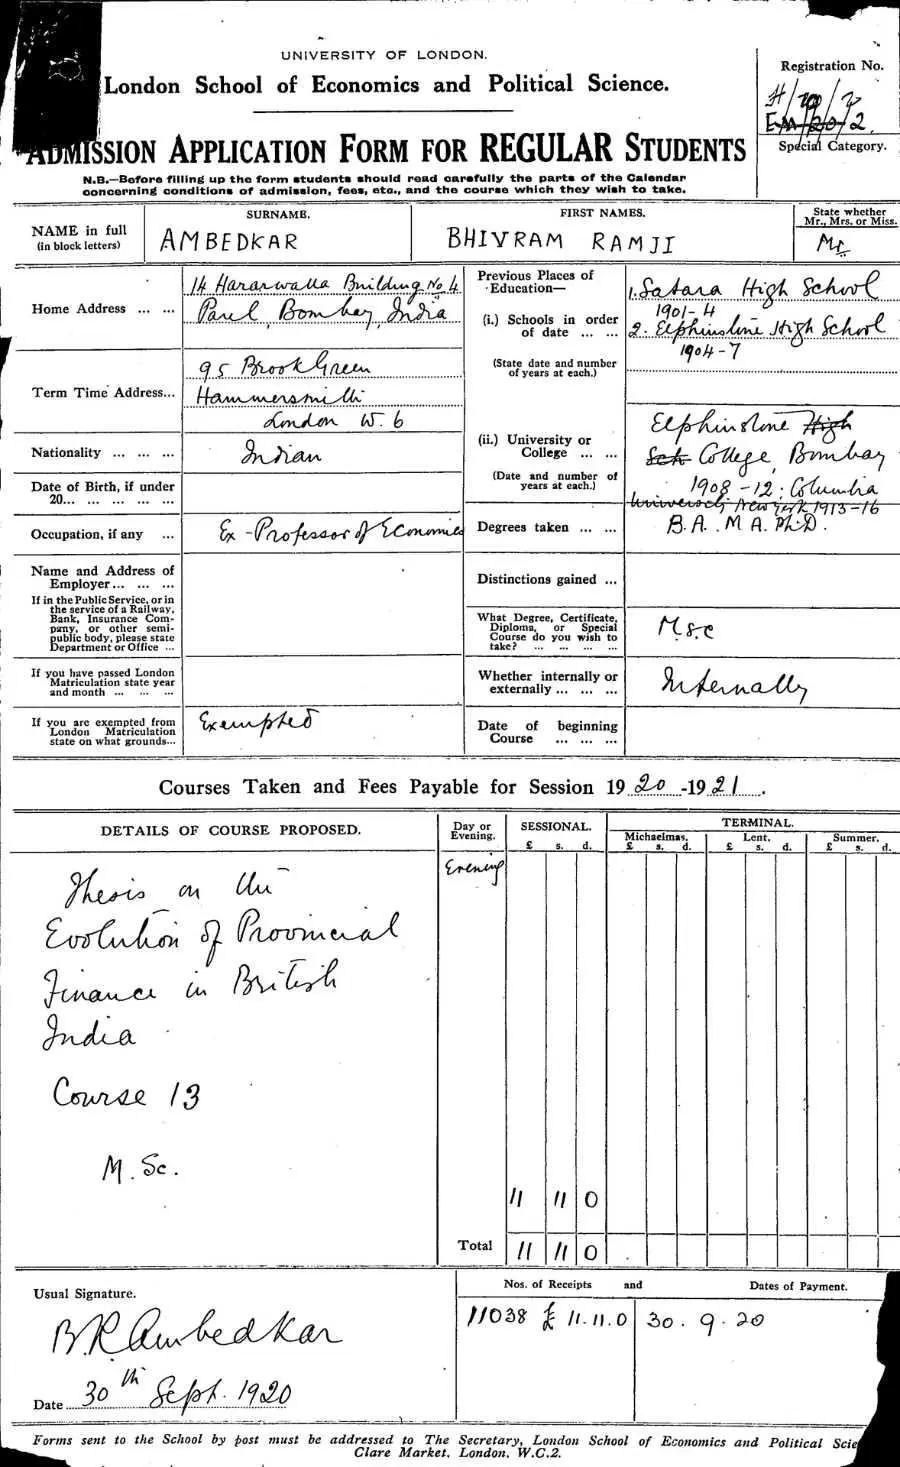 UNIVERSITY OF LONDON.
London School of Economics and Political Science.
Registration No.
H/20/2
EM/20/2.
Special Category.
ADMISSION APPLICATION FORM FOR REGULAR STUDENTS
N.B.—Before filling up the form students should read carefully the parts of the Calendar
concerning conditions of admission, fees, etc., and the course which they wish to take.
NAME in full
(in block letters)
SURNAME.
AMBEDKAR
FIRST NAMES.
BHIVRAM RAMJI
State whether
Mr., Mrs. or Miss.
Mr
Home Address ... ...
14 Hararwalla Building No. 4
Parel, Bombay, India
Term Time Address...
95 Brook Green
Hammersmith
London W. 6
Nationality ... ... ...
Indian
Date of Birth, if under
20... ... ... ... ...
Occupation, if any ...
Ex-Professor of Economics
Name and Address of
Employer... ... ...
If in the Public Service, or in
the service of a Railway,
Bank, Insurance Com-
pany, or other semi-
public body, please state
Department or Office ...
If you have passed London
Matriculation state year
and month ... ... ...
If you are exempted from
London Matriculation
state on what grounds...
Exempted
Previous Places of
Education—
(i.) Schools in order
of date ... ...
(State date and number
of years at each.)
1. Satara High School
1901-4
2. Elphinstone High School
1904-7
(ii.) University or
College ... ...
(Date and number of
years at each.)
Elphinstone High
Sch College, Bombay
1908-12: Columbia
University New York 1913-16
Degrees taken ... ...
B.A. M A. Ph.D.
Distinctions gained ...
What Degree, Certificate,
Diploma, or Special
Course do you wish to
take? ... ... ... ...
M.Sc
Whether internally or
externally ... ... ...
Internally
Date of beginning
Course ... ... ...
Courses Taken and Fees Payable for Session 1920-1921.
DETAILS OF COURSE PROPOSED.
Day or
Evening.
SESSIONAL.
£ s. d.
TERMINAL.
Michaelmas. Lent. Summer.
£ s. d. £ s. d. £ s. d.
Evening
Thesis on the
Evolution of Provincial
Finance in British
India
Course 13
M. Sc.
11 11 0
Total 11 11 0
Usual Signature.
B. R. Ambedkar
Date 30th Sept. 1920
Nos. of Receipts and Dates of Payment.
11038 £ 11.11.0 30.9.20
Forms sent to the School by post must be addressed to The Secretary, London School of Economics and Political Scie
Clare Market, London, W.C.2.